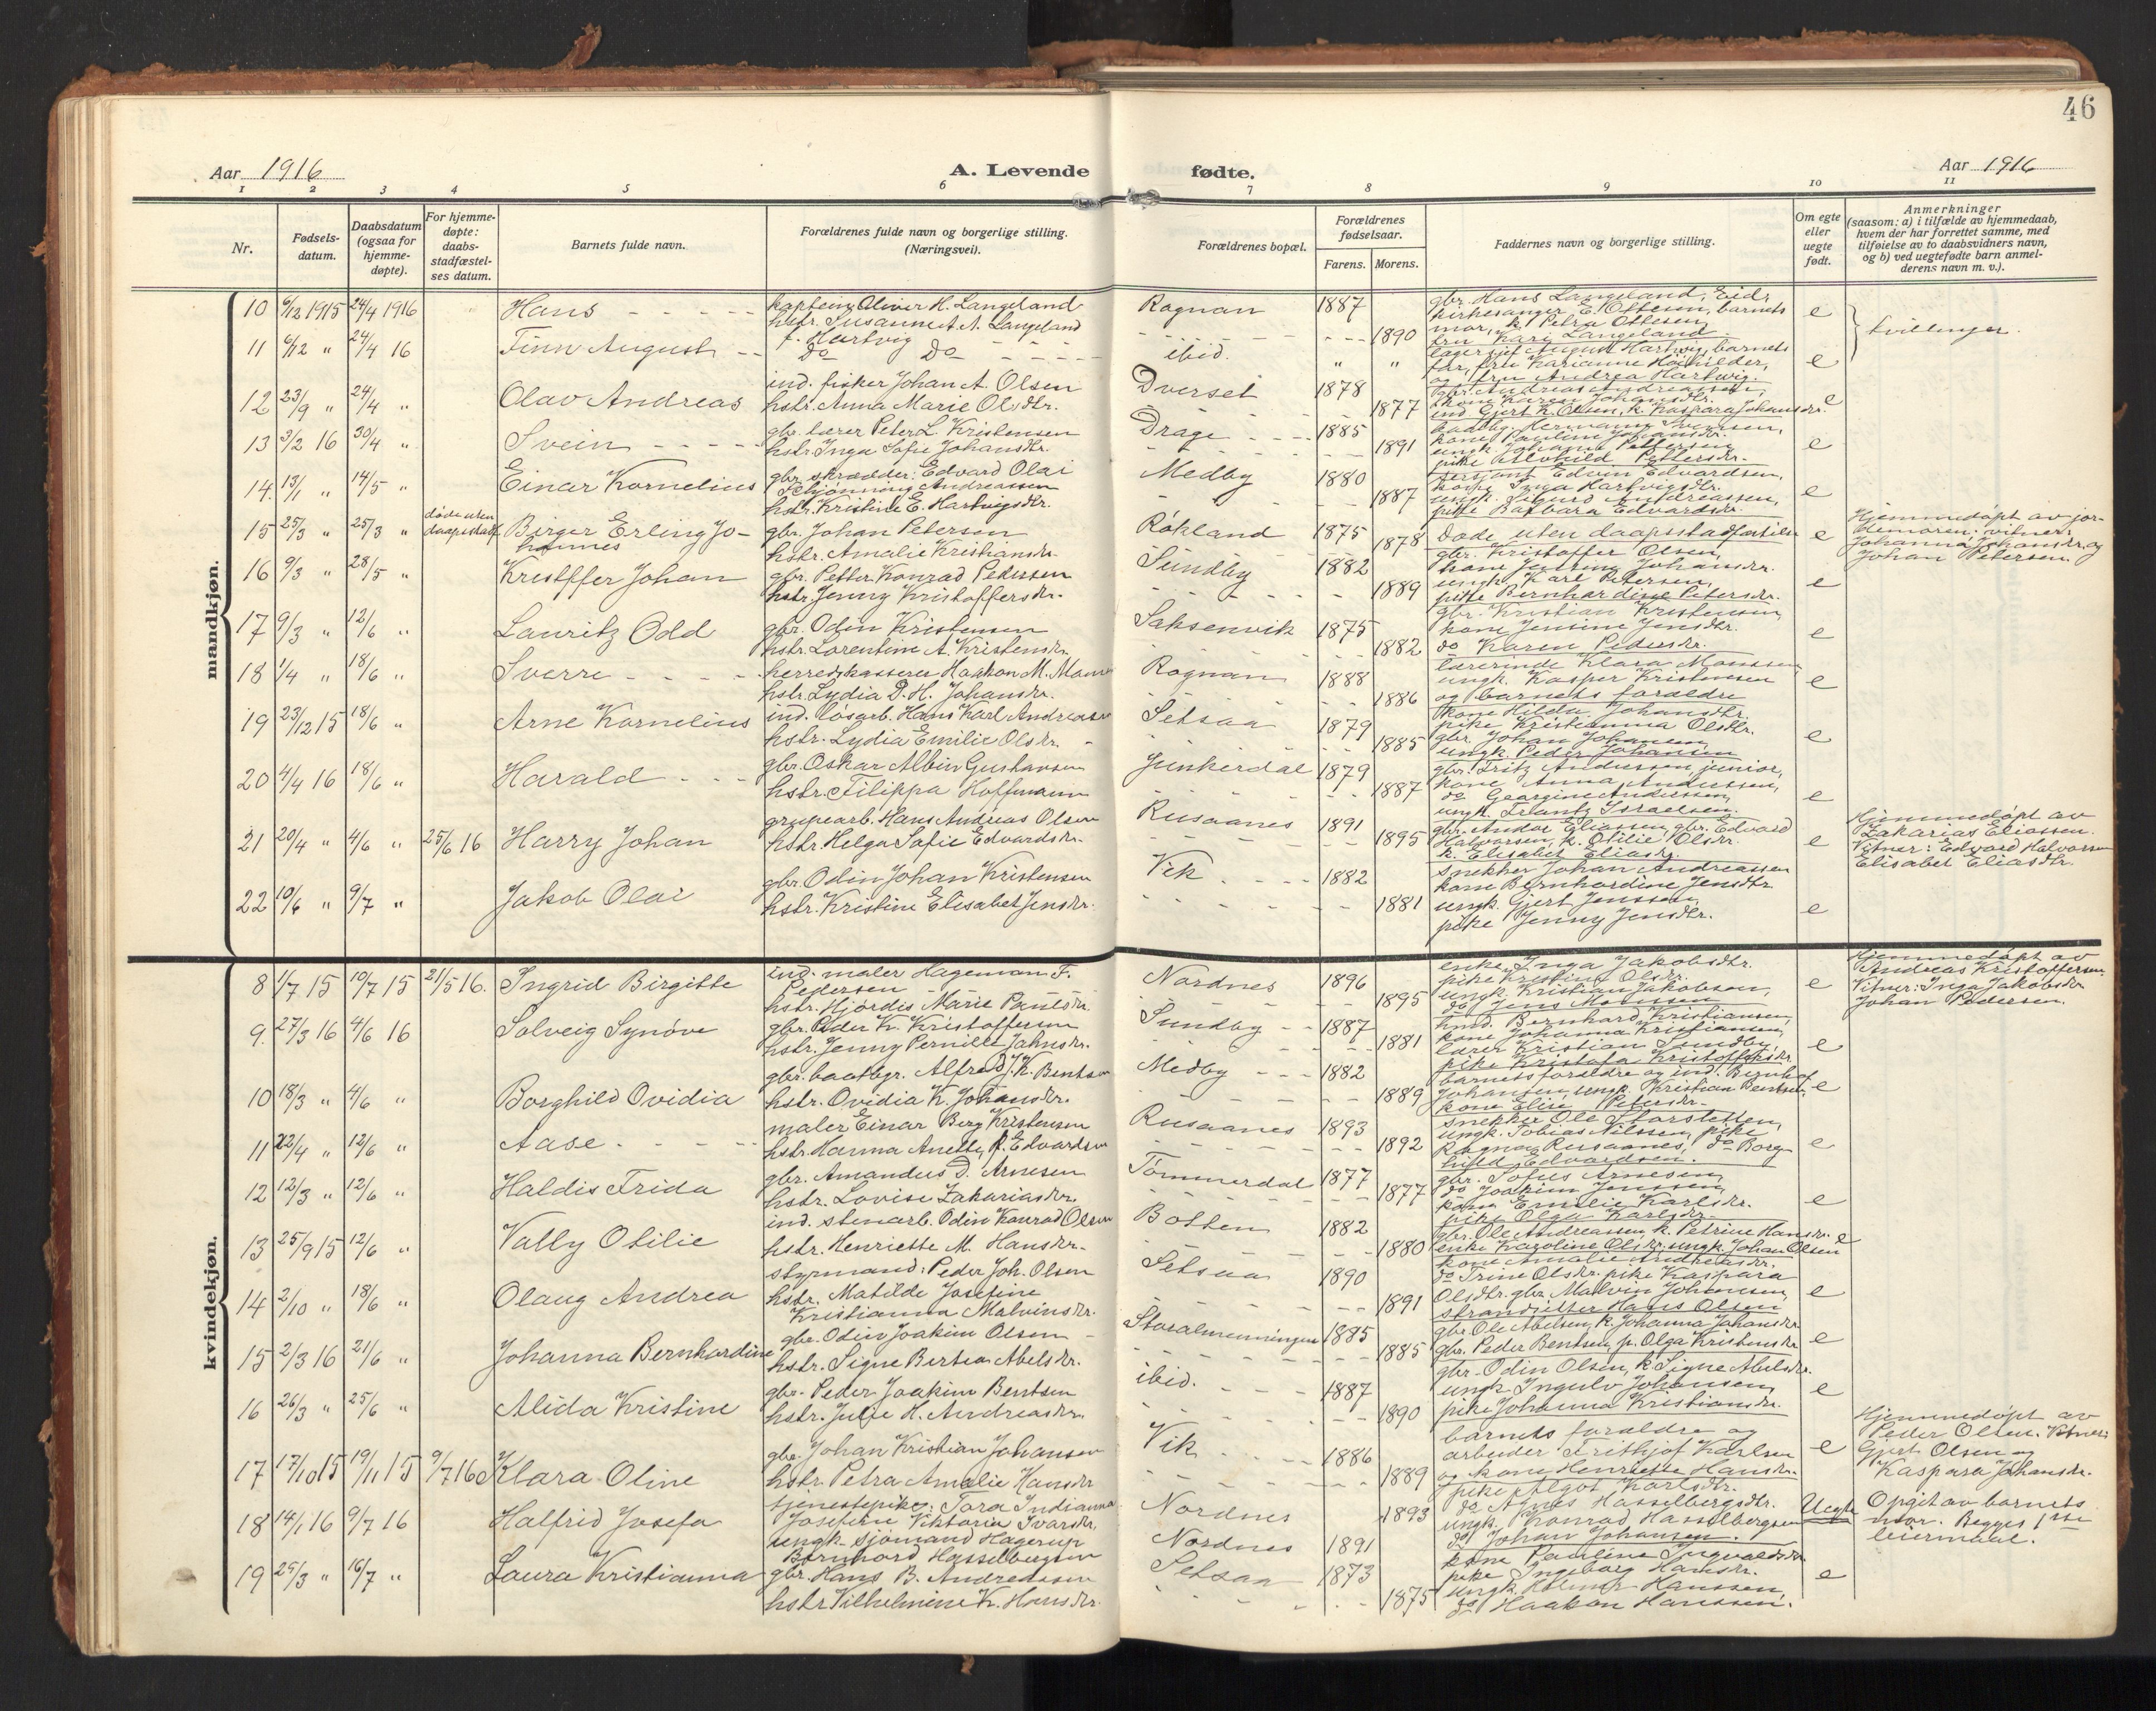 46
Aar 1916
A. Levende fødte.
Aar 1916
1 2 3 4 5 6 7 8 9 10 11
Nr.
Fødsels-
datum.
Daabsdatum
(ogsaa for
hjemme-
døpte).
For hjemme-
døpte:
daabs-
stadfæstel-
ses datum.
Barnets fulde navn.
Forældrenes fulde navn og borgerlige stilling.
(Næringsvei).
Forældrenes bopæl.
Forældrenes
fødselsaar.
Farens. Morens.
Faddernes navn og borgerlige stilling.
Om egte
eller
uegte
født.
Anmerkninger
(saasom: a) i tilfælde av hjemmedaab,
hvem der har forrettet samme, med
tilføielse av to daabsvidners navn,
og b) ved uegtefødte barn anmel-
derens navn m. v.).
mandkjøn.
10 6/12 1915 24/4 1916 Hans
kaptein Oliver H. Langeland
hstr. Susanne A. A. Langeland
f. Hartvig
Rognan 1887 1890
gbr. Hans Langeland, Eid,
kirkesanger E. Ottesen, barnets
mor, k. Petra Ottesen,
fru Kary Langeland.
e
tvillinger.
11 6/12 " 24/4 16 Finn August
Do Do
ibid. " "
lagersjef August Hartvig, barnets
far, fru Marianne
og fru Andrea Hartvig.
e
12 23/9 " 24/4 " Olav Andreas
ind. fisker Johan A. Olsen
hstr. Anna Marie Olsdtr.
Dverset 1878 1877
gbr. Andreas Andreassen,
kone Karen Johansdtr.
ind. Gjert K. Olsen, k. Kaspara Johansdr.
e
13 3/2 16 30/4 " Svein
gbr. lærer Peter L. Kristensen
hstr. Inga Sofie Johansdtr.
Drage 1885 1891
baatbg. Hermann Svendsen,
kone Pauline Johansdtr.
ungk. Johan Pettersen,
pike Alvhild Pettersdr.
e
14. 13/1 " 14/5 " Einar Kornelius
gbr. skrædder: Edvard Olai
Schjønning Andreassen
hstr. Kristine E. Hartvigsdtr.
Medby 1880 1887
sersjant Edvin Edvardsen,
kone Inga Hartvigsdtr.
ungk. Sigurd Andreassen,
pike Barbara Edvardsdr.
e
15 25/3 " 25/3 "
døde uten
daapsstadf.
Birger Erling Jo-
hannes
gbr. Johan Petersen
hstr. Amalie Kristiansdr.
Røkland 1875 1878
Døde uten daapsstadfæstelse
e
Hjemmedøpt av jor-
demoren; vitner:
Johanna Johansdr. og
Johan Petersen.
16 9/3 " 28/5 " Kristffer Johan
gbr. Petter Konrad Pedersen
hstr. Jenny Kristoffersdr.
Sundby 1882 1889
gbr. Kristoffer Olsen,
kone Jensine Johansdr.
ungk. Karl Petersen,
pike Bernhardine Petersdr.
e
17 9/3 " 12/6 " Lauritz Odd
gbr. Odin Kristensen
hstr. Lorentine A. Kristensdr.
Saksenvik 1875 1882
gbr. Kristian Kristensen,
kone Jensine Jensdtr.
do Karen Pedersdr.
e
18 1/4 " 18/6 " Sverre
herredskasserer Haakon M. Monsen
hstr. Lydia D. H. Johansdr.
Rognan 1888 1886
lærerinde Klara Monssen,
ungk. Kasper Kristensen
og barnets forældre
e
19 23/12 15 18/6 " Arne Kornelius
ind. løsarb. Hans Karl Andreasen
hstr. Lydia Emilie Olsdr.
Setsaa 1879 1885
kone Hilda Johansdtr.
pike Kristianna Olsdtr.
gbr. Johan Johansen,
ungk. Peder Johansen
e
20 4/4 16 18/6 " Harald
gbr. Oskar Albin Gustavsen
hstr. Filippa Hoffmann
Junkerdal 1879 1887
gbr. Fritz Andersen junior,
kone Anna Andersen,
do Georgine Andersen,
ungk. Frantz Israelsen.
e
21 20/4 " 4/6 " 25/6 16 Harry Johan
grupearb. Hans Andreas Olsen
hstr. Helga Sofie Edvardsdr.
Rusaanes 1891 1895
gbr. Andor Eliassen, gbr. Edvard
Halvorsen, k. Otilie Olsdr.
k. Elisabet Eliasdr.
e
Hjemmedøpt av
Zakarias Eliassen.
Vitner: Edvard Halvorsen
Elisabet Eliasdtr.
22 10/6 " 9/7 " Jakob Olai
gbr. Odin Johan Kristensen
hstr. Kristine Elisabet Jensdr.
Vik 1882 1881
snekker Johan Andreassen
kone Bernhardine Jensdtr.
ungk. Gjert Jenssen,
pike Jenny Jensdtr.
e
kvindekjøn.
8 1/7 15 10/7 15 21/5 16. Ingrid Birgitte
ind. maler Hageman F.
Pedersen
hstr. Hjørdis Marie Paulsdr.
Nordnes 1896 1895
enke Inga Jakobsdtr.
pike Kristine Olsdr.
ungk. Kristian Jakobsen,
do Jens Monssen
e
Hjemmedøpt av
Andreas Kristoffersen.
Vitner: Inga Jakobsdr
Johan Pedersen.
9. 27/3 16 4/6 16 Solveig Synøve
gbr. Peder K. Kristoffersen
hstr. Jenny Pernille Jahnsdr.
Sundby 1887 1881
hmd. Bernhard Kristiansen,
kone Johanna Kristiansen,
lærer Kristian Sundby,
pike Kristofa Kristoffersdr.
e
10 18/3 " 4/6 " Borghild Ovidia
gbr. baatbgr. Alfred J. K. Bentsen
hstr. Ovidia K. Johansdr.
Medby 1882 1889
barnets forældre og ind. Bernhof
Johansen, ungk. Kristian Bentsen
kone Elise Petersdr.
e
11 22/4 " 12/6 " Aase
maler Einar Berg Kristensen
hstr. Hanna Anette R. Edvardsen
Rusaanes 1893 1892
snekker Ole Storstetten,
ungk. Tobias Nilssen, pike
Ragna Rusaanes, do Borg-
hild Edvardsen.
e
12 12/3 " 12/6 " Haldis Frida
gbr. Amandus D. Arnesen
hstr. Lovise Zakariasdr.
Tømmerdal 1877 1877
gbr. Sofus Arnesen,
do Joakim Jenssen,
kone Emilie Karlsdr.
pike Olga Karlsdr.
e
13 25/9 15 12/6 " Vally Otilie
ind. stenarb. Odin Konrad Olsen
hstr. Henriette M. Hansdr.
Botten 1882 1880
gbr. Ole Andreassen, k. Petrine Hansdr.
enke Karoline Olsdr. ungk. Johan Olsen
kone Amalie Andreasdr.
e
14 2/10 " 18/6 " Olaug Andrea
styrmand: Peder Joh. Olsen
hstr. Matilde Josefine
Kristianna Malvinsdr.
Setsaa 1890 1891
do Trine Olsdr. pike Kaspara
Olsdtr. gbr. Malvin Johansen,
strandsitter Hans Olsen
e
15 2/3 16 21/6 " Johanna Bernhardine
gbr. Odin Joakim Olsen
hstr. Signe Bertea Abelsdr.
Storalmenningen 1885 1885
gbr. Ole Abelsen, k. Johanna Johansdr.
gbr. Peder Bentsen, p. Olga Kristensdr
e
16 26/3 " 25/6 " Alida Kristine
gbr. Peder Joakim Bentsen
hstr. Julie H. Andreasdr.
ibid. 1887 1890
gbr. Odin Olsen, k. Signe Abelsdr.
ungk. Ingulv Johansen,
pike Johanna Kristiansdr.
e
17 17/10 15 19/11 15 9/7 16 Klara Oline
gbr. Johan Kristian Johansen
hstr. Petra Amalie Hansdr
Vik 1886 1889
barnets forældre og
arbeider Frithjof Karlsen
og kone Henriette Hansdr.
e
Hjemmedøpt av
Peder Olsen. Vitner:
Gjert Olsen og
Kaspara Johansdr.
18 14/1 16 9/7 16 Halfrid Josefa
tjenestepike: Tora Indianna
Josefine Viktoria Ivarsdr.
ungk. sjømand Hagerup
Bernhard Hasselbergsen
Nordnes 1893
Nordnes 1891
pike Algot Karlsdr.
do Agnes Hasselbergsdtr.
ungk. Konrad Hasselbergsen
do Johan Johansen.
Uegte
Opgit av barnets
mor. Begges 1ste
leiermaal.
19 25/3 " 16/7 " Laura Kristianna
gbr. Hans B. Andreassen
hstr. Vilhelmine K. Hansdr.
Setsaa 1873 1875
kone Pauline Ingvaldsdr.
pike Ingeborg Hansdr.
ungk. Hilmar Hanssen,
do Haakon Hanssen.
e